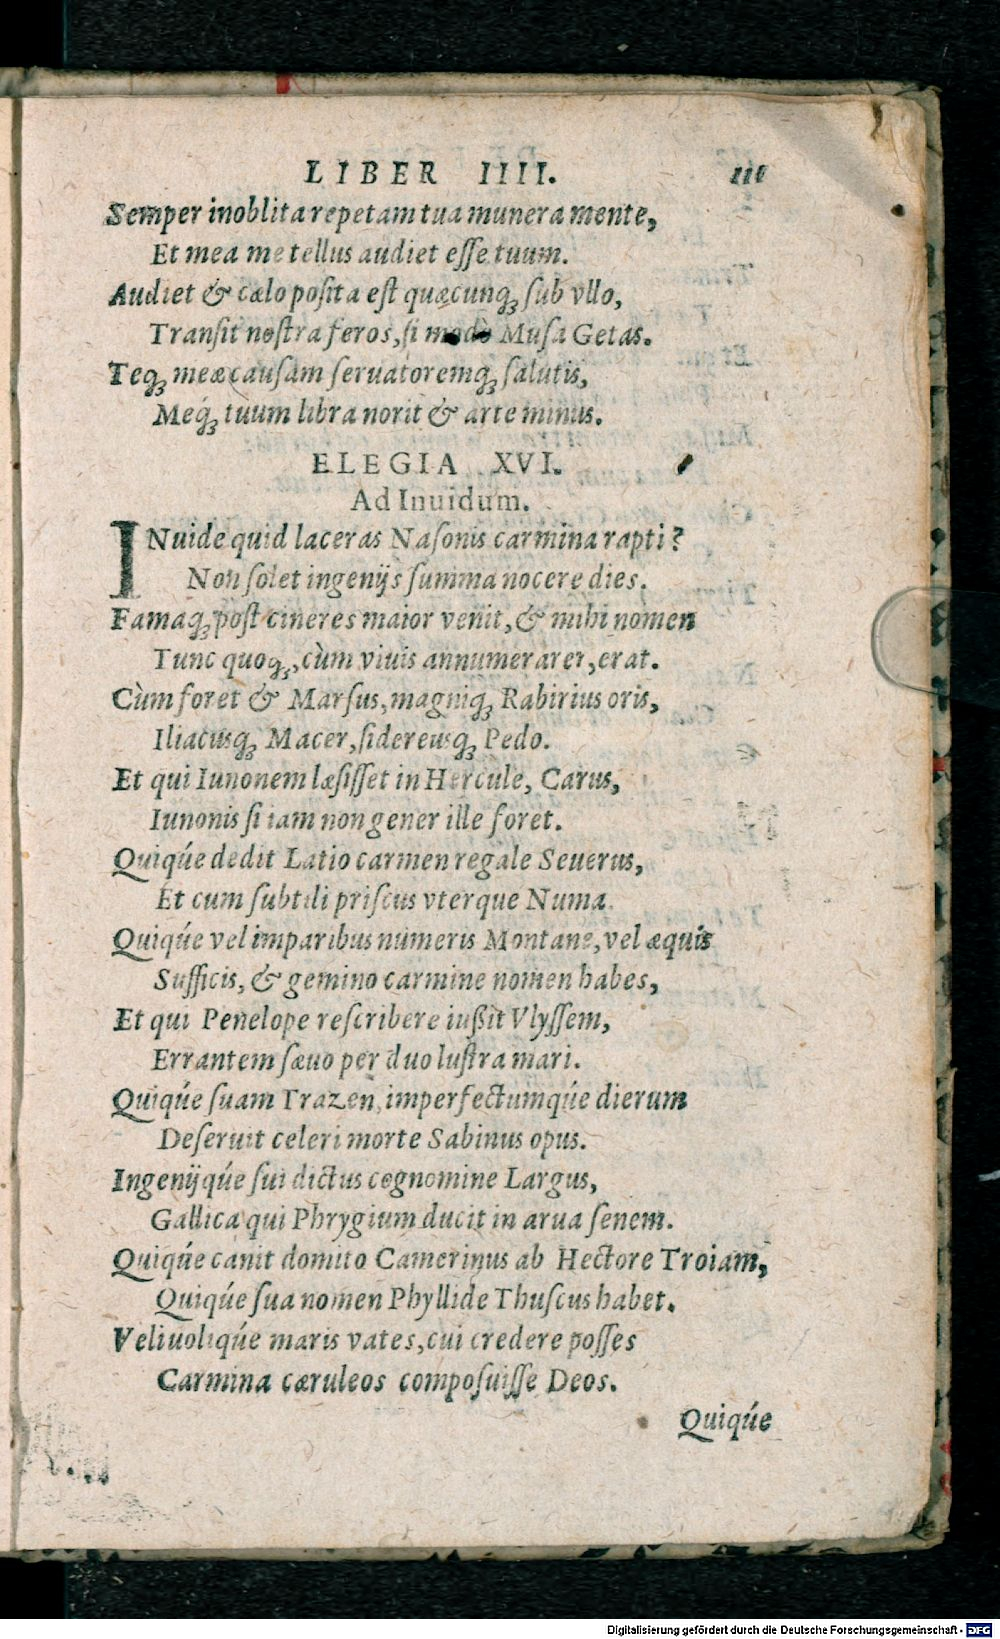 LIBER IIII. 111
Semper inoblita repetam tua munera mente,
Et mea me tellus audiet eſſe tuum.
Audiet & cælo poſita eſt quæcunq́ꝫ ſub vllo,
Tranſit noſtra feros, ſi modò Muſa Getas.
Teq́ꝫ meæ cauſam ſeruatoremq́ꝫ ſalutis,
Meq́ꝫ tuum libra norit & arte minus.
ELEGIA XVI.
Ad Inuidum.
INuide quid laceras Naſonis carmina rapti?
Non ſolet ingenijs ſumma nocere dies.
Famaq́ꝫ poſt cineres maior venit, & mihi nomen
Tunc quoqꝫ, cùm viuis annumerarer, erat.
Cùm foret & Marſus, magniq́ꝫ Rabirius oris,
Iliacusq́ꝫ Macer, ſidereusq́ꝫ Pedo.
Et qui Iunonem læſiſſet in Hercule, Carus,
Iunonis ſi iam non gener ille foret.
Quiq́ue dedit Latio carmen regale Seuerus,
Et cum ſubtili priſcus vterque Numa.
Quiq́ue vel imparibus numeris Montane, vel æquis
Sufficis, & gemino carmine nomen habes,
Et qui Penelope reſcribere iußit Vlyſſem,
Errantem ſæuo per duo luſtra mari.
Quiq́ue ſuam Trazen, imperfectumq́ue dierum
Deſeruit celeri morte Sabinus opus.
Ingenijq́ue ſui dictus cognomine Largus,
Gallica qui Phrygium ducit in arua ſenem.
Quiq́ue canit domito Camerinus ab Hectore Troiam,
Quiq́ue ſua nomen Phyllide Thuſcus habet.
Veliuoliq́ue maris vates, cui credere poſſes
Carmina cæruleos compoſuiſſe Deos.
Quiq́ue
Digitalisierung gefördert durch die Deutsche Forschungsgemeinschaft - DFG